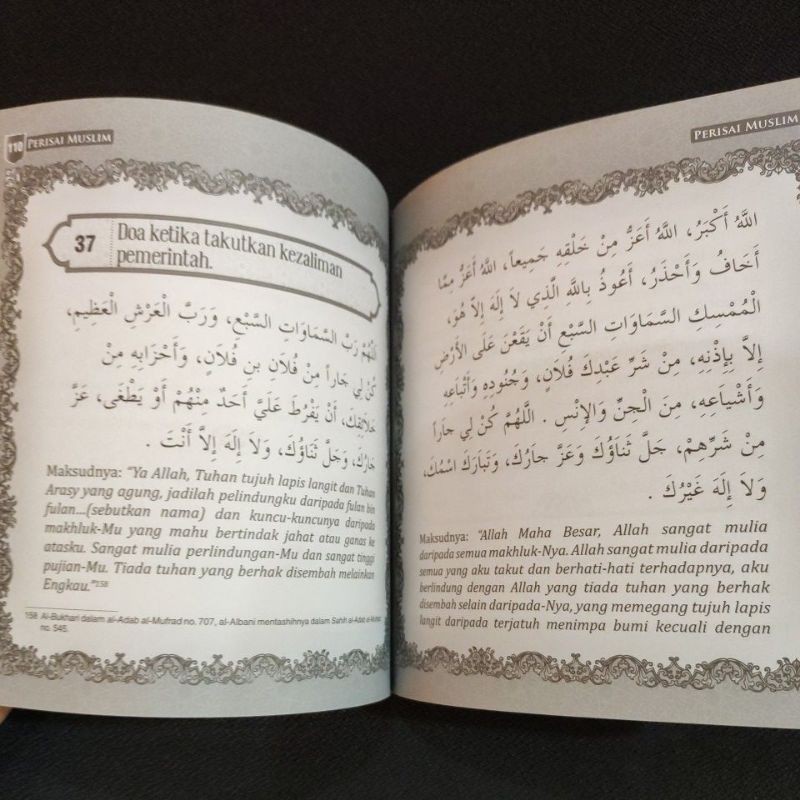 110 PERISAI MUSLIM
37 Doa ketika takutkan kezaliman
pemerintah.
اللَّهُمَّ رَبَّ السَّمَاوَاتِ السَّبْعِ، وَرَبَّ الْعَرْشِ الْعَظِيمِ،
كُنْ لِي جَاراً مِنْ فُلَانِ بنِ فُلَانٍ، وَأَحْزَابِهِ مِنْ
خَلَائِقِكَ، أَنْ يَفْرُطَ عَلَيَّ أَحَدٌ مِنْهُمْ أَوْ يَطْغَى، عَزَّ
جَارُكَ، وَجَلَّ ثَنَاؤُكَ، وَلَا إِلَهَ إِلَّا أَنْتَ .
Maksudnya: "Ya Allah, Tuhan tujuh lapis langit dan Tuhan
Arasy yang agung, jadilah pelindungku daripada fulan bin
fulan...(sebutkan nama) dan kuncu-kuncunya daripada
makhluk-Mu yang mahu bertindak jahat atau ganas ke
atasku. Sangat mulia perlindungan-Mu dan sangat tinggi
pujian-Mu. Tiada tuhan yang berhak disembah melainkan
Engkau."158
158 Al-Bukhari dalam al-Adab al-Mufrad no. 707, al-Albani mentashihnya dalam Sahih al-Adab al-Mufrad
no. 545.
PERISAI MUSLIM
اللَّهُ أَكْبَرُ، اللَّهُ أَعَزُّ مِنْ خَلْقِهِ جَمِيعاً، اللَّهُ أَعَزُّ مِمَّا
أَخَافُ وَأَحْذَرُ، أَعُوذُ بِاللَّهِ الَّذِي لَا إِلَهَ إِلَّا هُوَ،
الْمُمْسِكِ السَّمَاوَاتِ السَّبْعِ أَنْ يَقَعْنَ عَلَى الْأَرْضِ
إِلَّا بِإِذْنِهِ، مِنْ شَرِّ عَبْدِكَ فُلَانٍ، وَجُنُودِهِ وَأَتْبَاعِهِ
وَأَشْيَاعِهِ، مِنَ الْجِنِّ وَالْإِنْسِ . اللَّهُمَّ كُنْ لِي جَاراً
مِنْ شَرِّهِمْ، جَلَّ ثَنَاؤُكَ وَعَزَّ جَارُكَ، وَتَبَارَكَ اسْمُكَ،
وَلَا إِلَهَ غَيْرُكَ .
Maksudnya: "Allah Maha Besar, Allah sangat mulia
daripada semua makhluk-Nya. Allah sangat mulia daripada
semua yang aku takut dan berhati-hati terhadapnya, aku
berlindung dengan Allah yang tiada tuhan yang berhak
disembah selain daripada-Nya, yang memegang tujuh lapis
langit daripada terjatuh menimpa bumi kecuali dengan